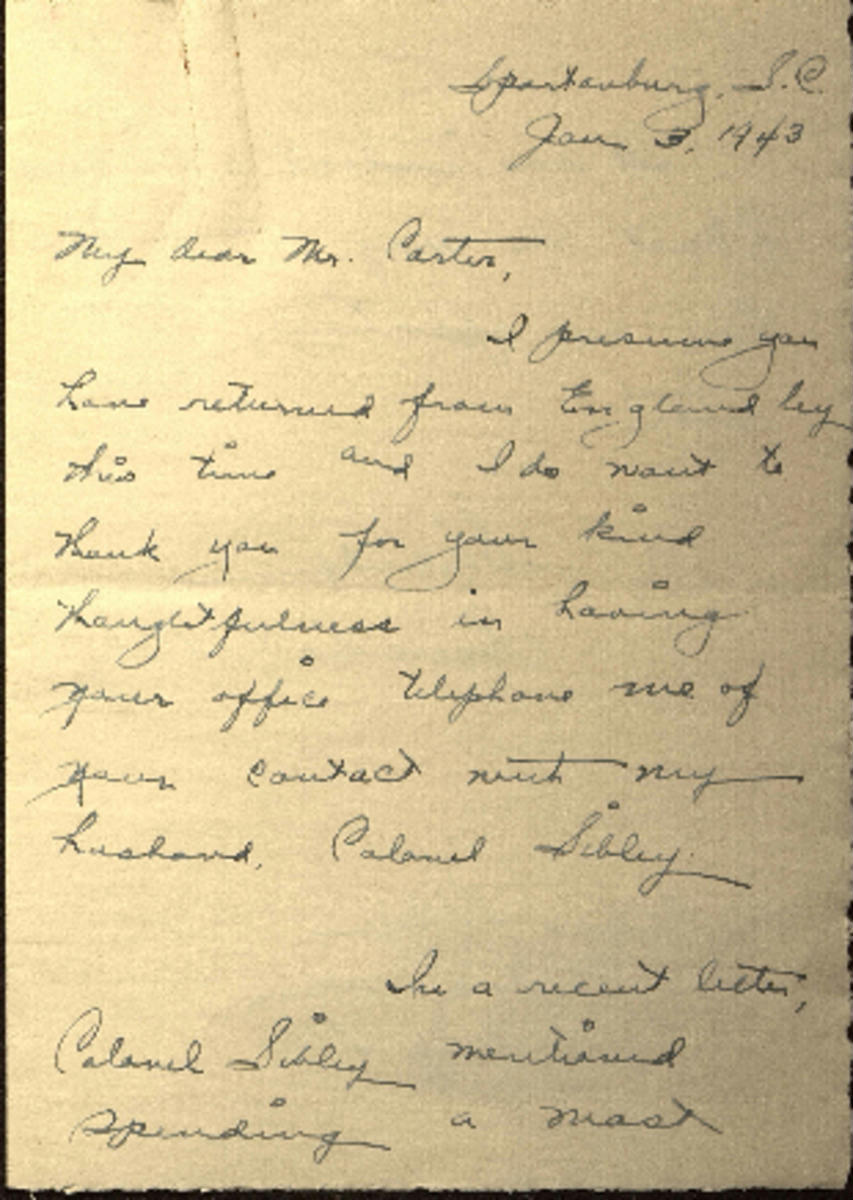 Spartanburg, S.C.
Jan 3, 1943
My dear Mr. Carter,
I presume you
have returned from England by
this time and I do want to
thank you for your kind
thoughtfulness in having
your office telephone me of
your contact with my
husband, Colonel Sibley.
In a recent letter,
Colonel Sibley mentioned
spending a most